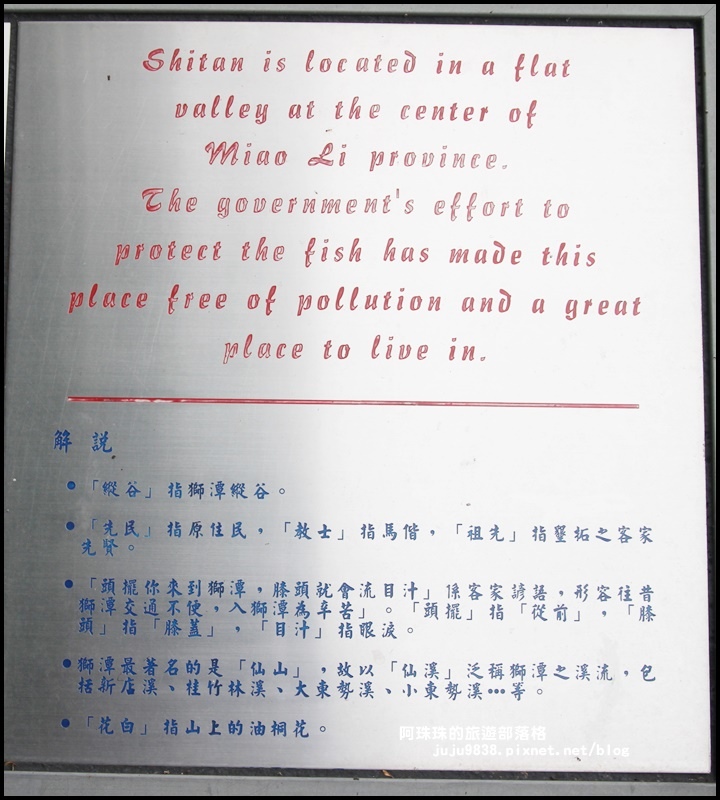 Shitan is located in a flat
valley at the center of
Miao Li province.
The government's effort to
protect the fish has made this
place free of pollution and a great
place to live in.
解說
●「縱谷」指獅潭縱谷。
●「先民」指原住民，「教士」指馬偕，「祖先」指墾拓之客家
先賢。
●「頭擺你來到獅潭，膝頭就會流目汁」係客家諺語，形容往昔
獅潭交通不便，入獅潭為辛苦」。「頭擺」指「從前」，「膝
頭」指「膝蓋」，「目汁」指眼淚。
●獅潭最著名的是「仙山」，故以「仙溪」泛稱獅潭之溪流，包
括新店溪、桂竹林溪、大東勢溪、小東勢溪…等。
●「花白」指山上的油桐花。
阿珠珠的旅遊部落格
juju9838.pixnet.net/blog